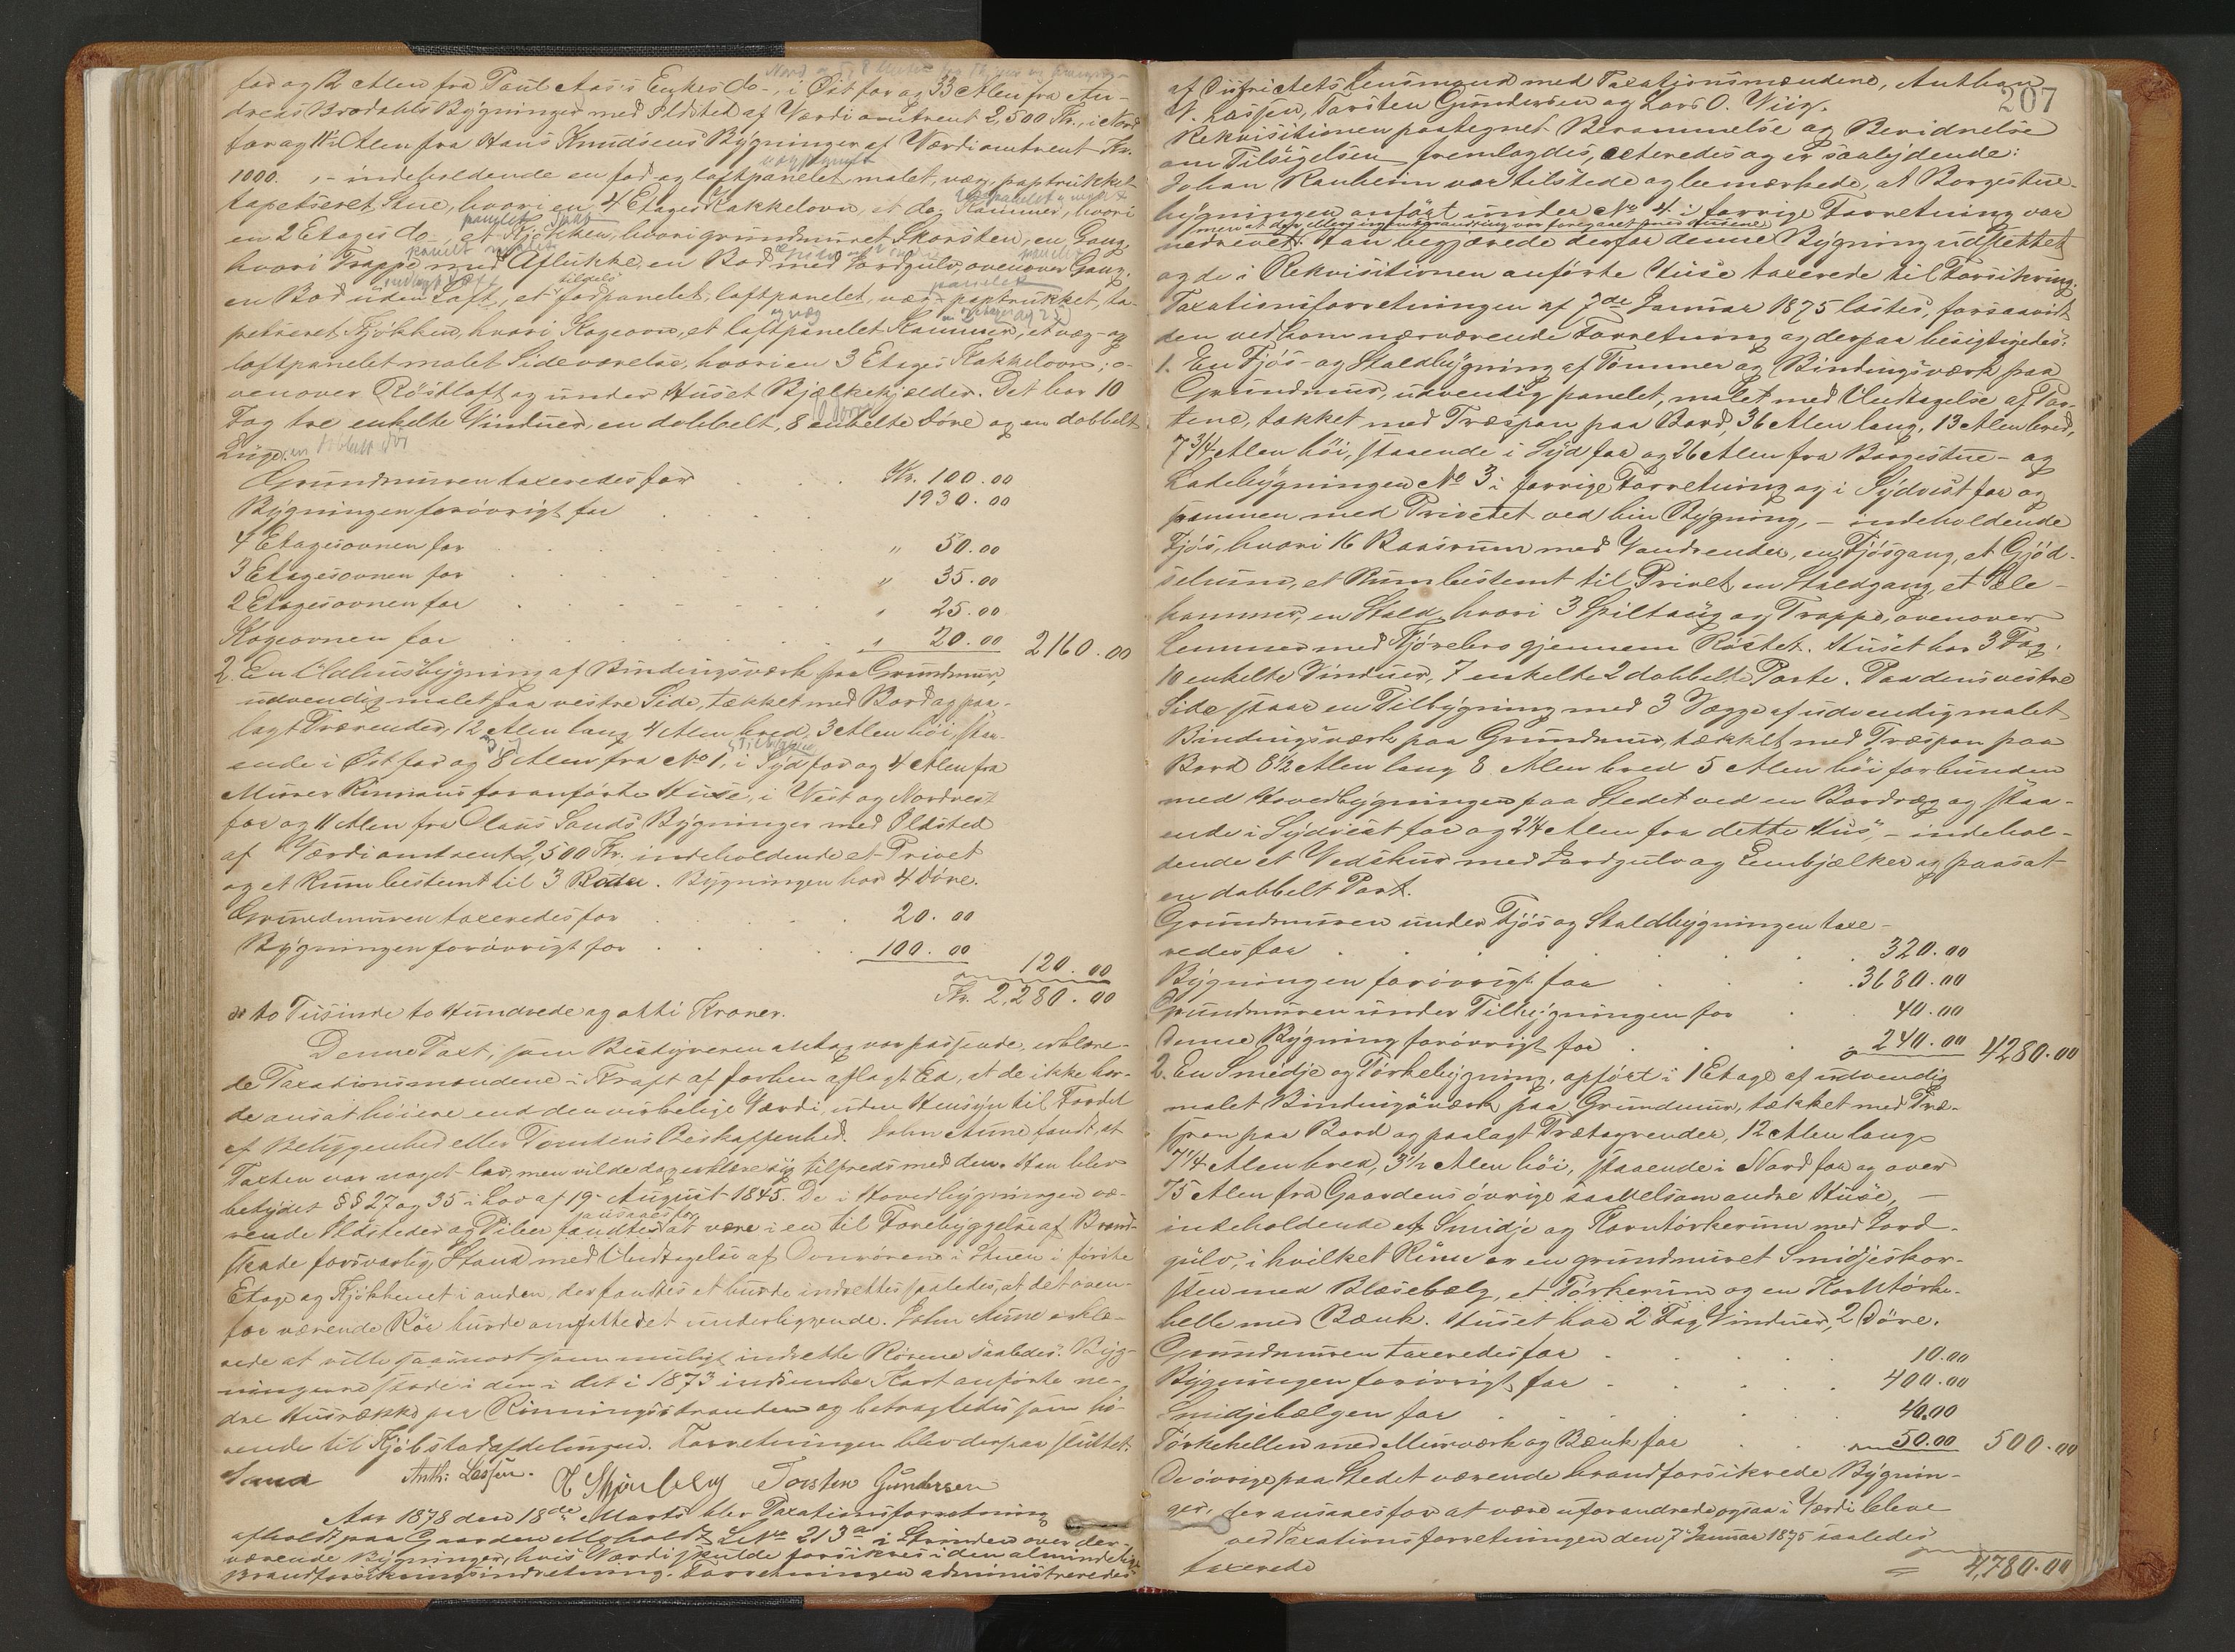 for og 12 Alen fra Paul Aas's Enkes do -, i Öst for og 33 Alen fra An-
dreas Brodahls Bygninger med Ildsted af Værdi omtrent 2,500 Kr., i Nord
for og 11 Alen fra Hans Knudsens Bygninger af Værdi omtrent Kr.
1000. ,- indeholdende en fad og loftpanelet, malet, væg paptrukket
tapetseret Stue, hvori en 4 Etages Kakkelovn, et do. Kammer, hvori
en 2 Etages do -, et Kjökken, hvori grundmuret Skorsten, en Gang,
hvori Trappe med Aflukke, en Bod med Jordgulv, ovenover Gang.
en Bod uden Loft, et fadpanelet, loftpanelet, væg paptrukket, ta-
petseret Kjökken, hvori Kogeovn, et loftpanelet Kammer, et væg- og
loftpanelet malet Sideværelse, hvori en 3 Etages Kakkelovn; o-
venover Röstloft og under Huset Bjælkekjælder. Det har 10
Fag tre enkelte Vinduer, en dobbelt, 8 enkelte Döre og en dobbelt
Luge. en dobbelt dör
Grundmuren taxeredes for . . Kr. 100.00
Bygningen forövrigt for . . 1930.00
4 Etagesovnen for . . " 50.00
3 Etagesovnen for . . " 35.00
2 Etagesovnen for . . " 25.00
Kogeovnen for . . " 20.00 2160.00
2. En Udhusbygning af Bindingsværk paa Grundmur,
udvendig malet paa vestre Side, tækket med Bord og paa-
lagt Trærender, 12 Alen lang 4 Alen bred, 3 Alen höi, staa-
ende i Öst for og 8 Alen fra No 1, i Syd for og 4 Alen fra
Murer Rinnans foranförte Huse, i Vest og Nordvest
for og 11 Alen fra Olaus Sands Bygninger med Ildsted
af Værdi omtrent 2,500 Kr. indeholdende et Privet
og et Rum bestemt til 3 Boder. Bygningen har 4 Döre.
Grundmuren taxeredes for . . 20.00
Bygningen forövrigt for . . 100.00
120.00
Kr. 2,280.00
er to Tusinde to Hundrede og otti Kroner.
Denne Taxt, som Bestyreren antog var passende, erklære-
de Taxationsmændene i Kraft af forhen aflagt Ed, at de ikke hav-
de ansat höiere end den virkelige Værdi, uden Hensyn til Fordel
af Beliggenhed eller Tomtens Beskaffenhed. John Aune fandt, at
Taxten var noget lav, men vilde dog erklære sig tilfreds med den. Han blev
betydet §§ 27 og 35 i Lov af 19. August 1845. De i Hovedbygningen væ-
rende Ildsteder og Piber fandtes at være i en til Forebyggelse af Brand-
skade forsvarlig Stand med Undtagelse af Ovnrörene i Stuen i förste
Etage og Kjökkenet i anden, der fandtes at burde indrettes saaledes, at det oven-
for værende Rör burde omfatte det underliggende. John Aune erklæ-
rede at ville saasnart som muligt indrette Rörene saaledes. Byg-
ningerne staae i den i det i 1873 indsendte Kart anförte ne-
dre Husrække paa Rinningsstranden og betragtedes som hö-
rende til Kjöbstadafdelingen. Forretningen blev derpaa sluttet.
Sand Anth: Lassen. O Skjönberg Torsten Gundersen
Aar 1878 den 18de Marts blev Taxationsforretning
afholdt paa Gaarden Moholdt L No 213a i Strinden over der-
værende Bygninger, hvis Værdi skulde forsikres i den almindelige
Brandforsikringsindretning. Forretningen administreredes
207
af Distriktets Lensmand med Taxationsmændene, Anthon
N. Lassen, Torsten Gundersen og Lars O. Wiig.
Rekvisitionen paategnet Berammelse og Bevidnelse
om Tilsigelsen fremlagdes, acteredes og er saalydende:
Johan Rauheim var tilstede og bemærkede, at Borgestue-
bygningen anfört under No 4 i forrige Forretning var
nedrevet. Han begjærede derfor denne Bygning udslettet
og de i Rekvisitionen anförte Huse taxerede til Forsikring.
Taxationsforretningen af 7de Januar 1875 læstes, forsaavidt
den vedkom nærværende Forretning og derpaa besigtigedes:
1. En Fjös- og Staldbygning af Tömmer og Bindingsværk paa
Grundmur, udvendig panelet, malet med Undtagelse af Por-
tene, tækket med Træspon paa Bord, 36 Alen lang, 13 Alen bred,
7 3/4 Alen höi, staaende i Syd for og 26 Alen fra Borgestue- og
Ladebygningen No 3 i forrige Forretning og i Sydvest for og
sammen med Privetet ved hin Bygning, - indeholdende
Fjös, hvori 16 Baasrum med Vandrender, en Fjösgang, et Gjöd-
selrum, et Rum bestemt til Privet, en Staldgang, et Sæle-
kammer, en Stald hvori 3 Spiltaug og Trappe, ovenover
Lemmer med Kjörebro gjennem Röstet. Huset har 3 Fag.
10 enkelte Vinduer, 7 enkelte 2 dobbelte Porte. Paa dens vestre
Side staar en Tilbygning med 3 Vægge af udvendig malet
Bindingsværk paa Grundmur, tækket med Træspon paa
Bord 8 1/2 Alen lang 8 Alen bred 5 Alen höi forbunden
med Hovedbygningen paa Stedet ved en Bordvæg og staa-
ende i Sydvest for og 24 Alen fra dette Hus, - indehol-
dende et Vedskur med Jordgulv og Lembjælker og paasat
en dobbelt Port.
Grundmuren under Fjös og Staldbygningen taxe-
redes for . . 320.00
Bygningen forövrigt for . . 3680.00
Grundmuren under Tilbygningen for . . 40.00
Denne Bygning forövrigt for . . 240.00 4280.00
2. En Smedje og Törkebygning, opfört i 1 Etage af udvendig
malet Bindingsværk paa Grundmur, tækket med Træ-
spon paa Bord og paalagt Trætagrender, 12 Alen lang
7 1/4 Alen bred, 3 1/2 Alen höi, staaende i Nord for og over
75 Alen fra Gaardens övrige saavelsom andre Huse, -
indeholdende et Smidje og Korntörkerum med Jord-
gulv, i hvilket Rum er en grundmuret Smidjeskor-
sten med Blæsebælg, et Törkerum og en Korntörke-
helle med Bænk. Huset har 2 Fag Vinduer, 2 Döre.
Grundmuren taxeredes for . . 10.00
Bygningen forövrigt for . . 400.00
Smidjebælgen for . . 40.00
Törkehellen med Murværk og Bænk for . . 50.00 500.00
De övrige paa Stedet værende brandforsikrede Bygnin-
ger, der ansaaes for at være uforandrede ogsaa i Værdi bleve
ved Taxationsforretningen den 7 Januar 1875 saaledes
taxerede = 4,780.00